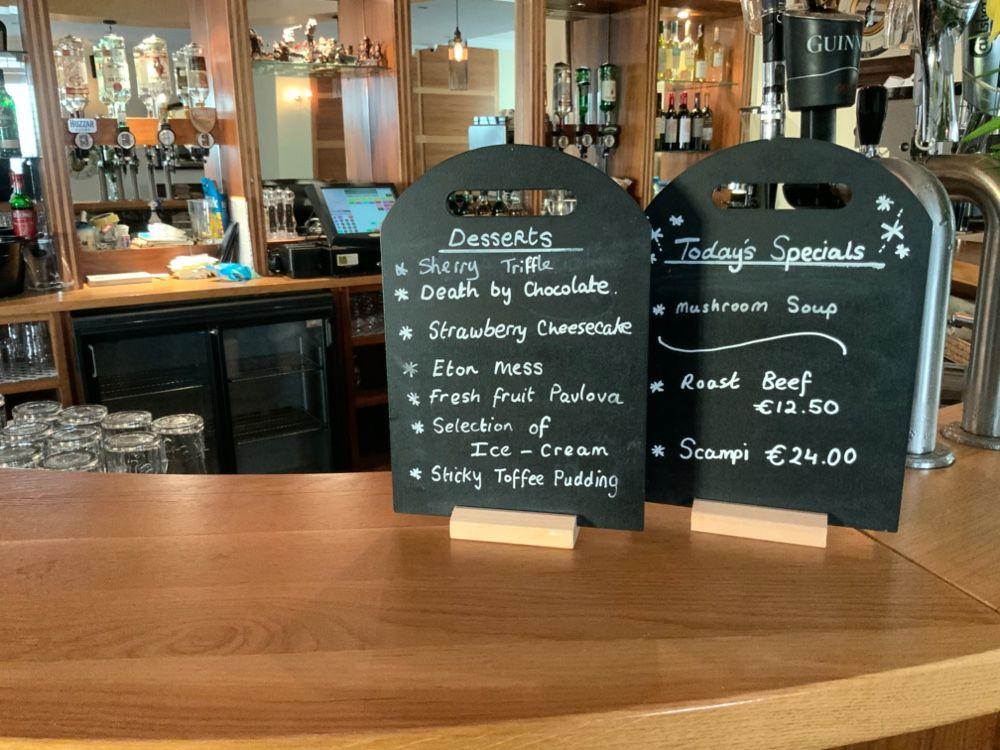 HUZZAR
GUINN
Desserts
* Sherry Triffle
* Death by Chocolate.
* Strawberry Cheesecake
* Eton Mess
* Fresh fruit Pavlova
* Selection of
Ice - Cream
* Sticky Toffee Pudding
Today's Specials
* Mushroom Soup
* Roast Beef
€12.50
* Scampi €24.00